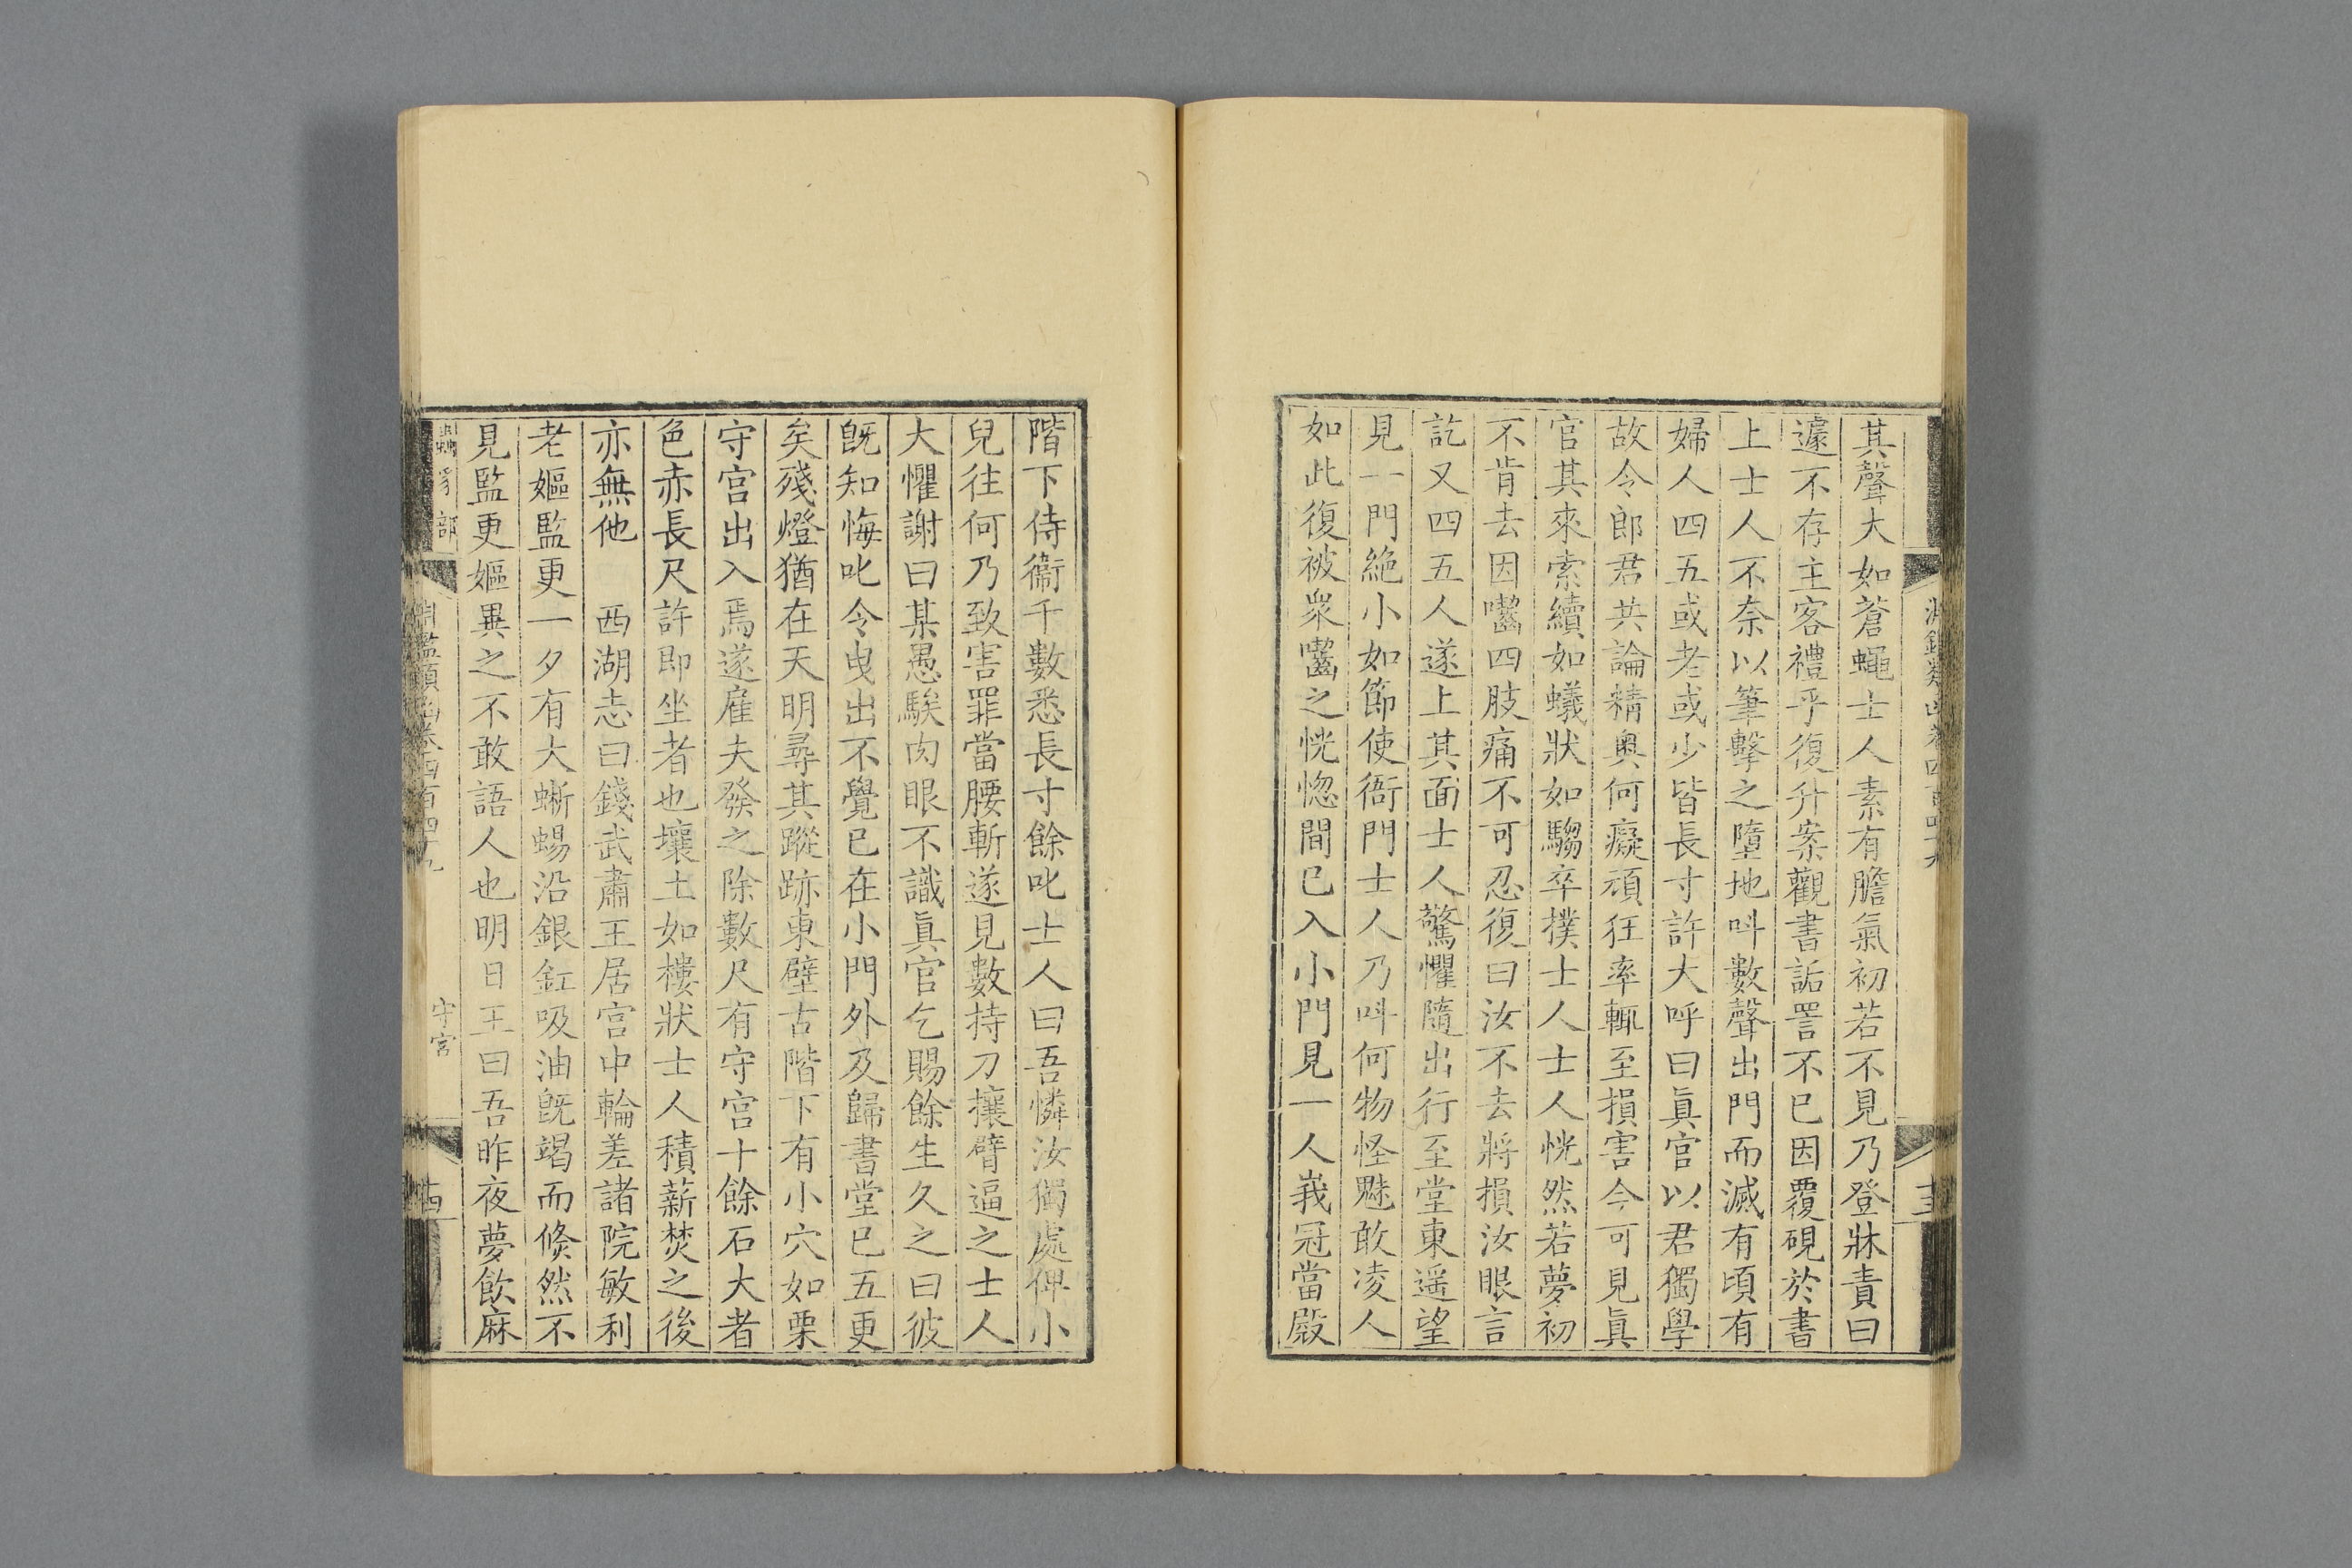 其聲大如蒼蠅士人素有膽氣初若不見乃登牀責曰
遽不存主客禮乎復升案觀書詬詈不已因覆硯於書
上士人不奈以筆擊之墮地呌數聲出門而滅有頃有
婦人四五或老或少皆長寸許大呼曰眞官以君獨學
故令郎君共論精奧何癡頑狂率輒至損害今可見眞
官其來索續如蟻狀如騶卒撲士人士人恍然若夢初
不肯去因嚙四肢痛不可忍復曰汝不去將損汝眼言
訖又四五人遂上其面士人驚懼隨出行至堂東遥望
見一門絶小如節使衙門士人乃呌何物怪魅敢凌人
如此復被衆嚙之恍惚間已入小門見一人峩冠當殿
階下侍衞千數悉長寸餘叱士人曰吾憐汝獨處俾小
兒往何乃致害罪當腰斬遂見數持刀攘臂逼之士人
大懼謝曰某愚騃肉眼不識眞官乞賜餘生久之曰彼
旣知悔叱令曳出不覺已在小門外及歸書堂已五更
矣殘燈猶在天明尋其蹤跡東壁古階下有小穴如栗
守宮出入焉遂雇夫發之除數尺有守宮十餘石大者
色赤長尺許即坐者也壤土如樓狀士人積薪焚之後
亦無他　西湖志曰錢武肅王居宮中輪差諸院敏利
老嫗監更一夕有大蜥蜴沿銀釭吸油旣竭而倐然不
見監更嫗異之不敢語人也明日王曰吾昨夜夢飲麻
蟲豸部
淵鑑類函卷四百四十九
守宮
十四